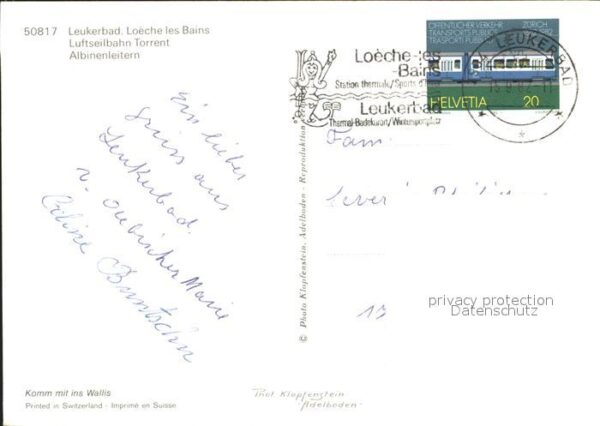 50817 Leukerbad. Loèche les Bains
Luftseilbahn Torrent
Albinenleitern
ÖFFENTLICHER VERKEHR ZÜRICH
TRANSPORTS PUBLICS
TRASPORTI PUBBLICI
HELVETIA 20
LEUKERBAD
Loèche-les
-Bains
Station thermale/Sports d'
Leukerbad
Thermal-Badekurort/Wintersportplatz
Ein lieber
Gruss aus
Leukerbad.
Marie
Fam.
13
privacy protection
Datenschutz
© Photo Klopfenstein, Adelboden - Reproduktion
Komm mit ins Wallis
Printed in Switzerland - Imprimé en Suisse
Phot Klopfenstein
Adelboden